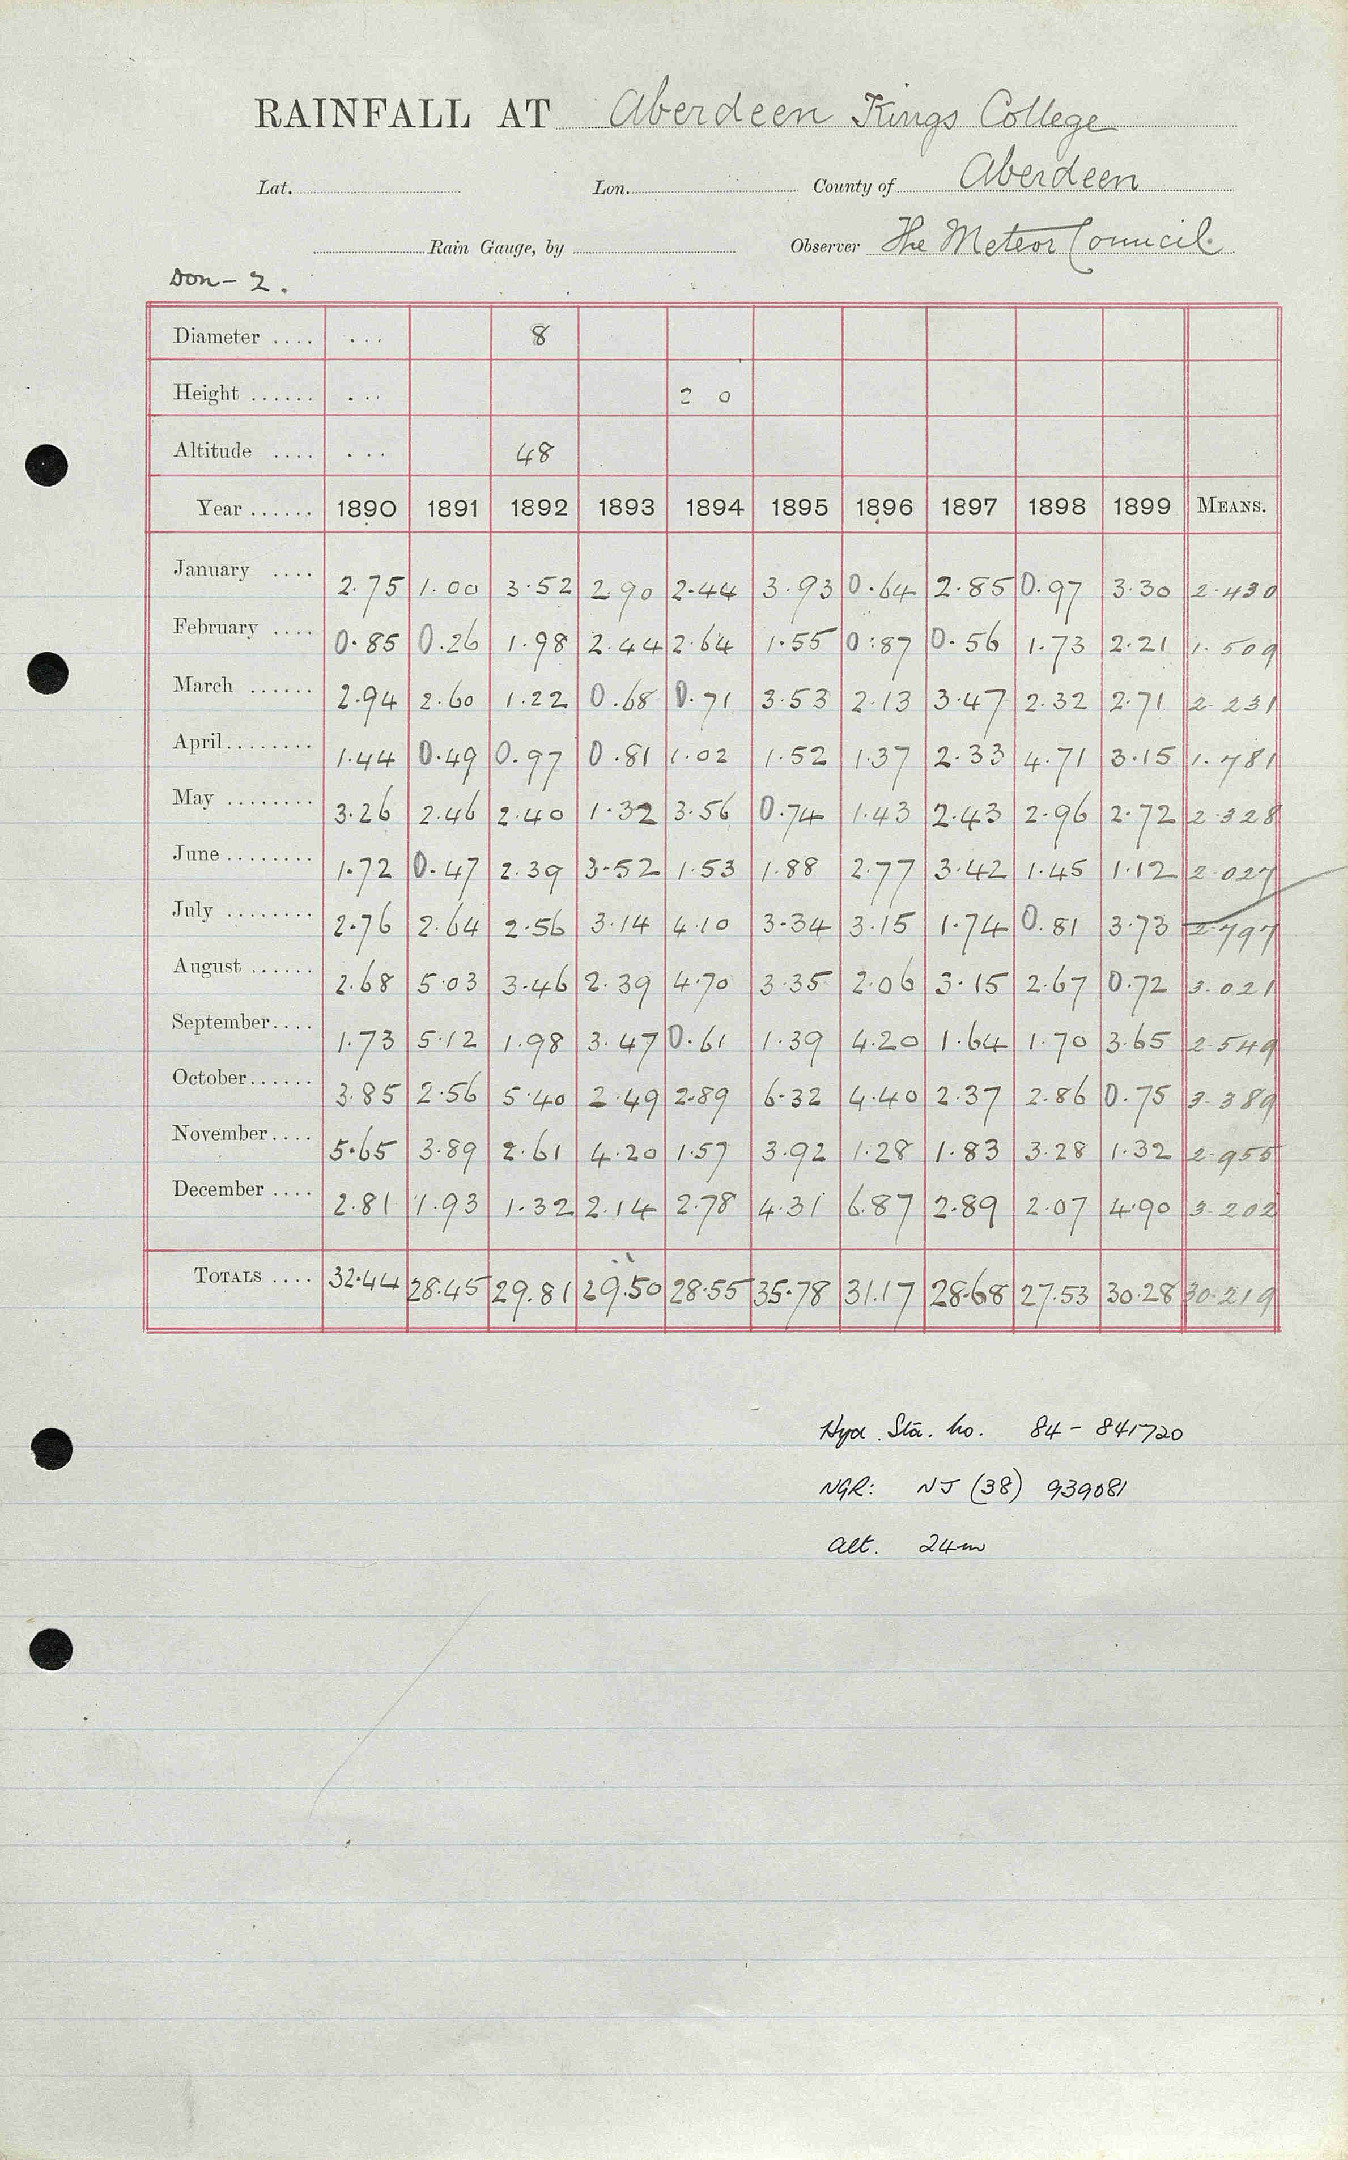 RAINFALL AT Aberdeen Kings College
Lat. Lon. County of Aberdeen
Rain Gauge, by Observer The Meteor Council.
Don - 2.
Diameter .... ... 8
Height ...... ... 2 0
Altitude .... ... 48
Year ...... 1890 1891 1892 1893 1894 1895 1896 1897 1898 1899 MEANS.
January .... 2.75 1.00 3.52 2.90 2.44 3.93 0.64 2.85 0.97 3.30 2.430
February .... 0.85 0.26 1.98 2.44 2.64 1.55 0.87 0.56 1.73 2.21 1.509
March ...... 2.94 2.60 1.22 0.68 0.71 3.53 2.13 3.47 2.32 2.71 2.231
April........ 1.44 0.49 0.97 0.81 1.02 1.52 1.37 2.33 4.71 3.15 1.781
May ........ 3.26 2.46 2.40 1.32 3.56 0.74 1.43 2.43 2.96 2.72 2.328
June ........ 1.72 0.47 2.39 3.52 1.53 1.88 2.77 3.42 1.45 1.12 2.027
July ........ 2.76 2.64 2.56 3.14 4.10 3.34 3.15 1.74 0.81 3.73 2.797
August ...... 2.68 5.03 3.46 2.39 4.70 3.35 2.06 3.15 2.67 0.72 3.021
September.... 1.73 5.12 1.98 3.47 0.61 1.39 4.20 1.64 1.70 3.65 2.549
October...... 3.85 2.56 5.40 2.49 2.89 6.32 4.40 2.37 2.86 0.75 3.389
November.... 5.65 3.89 2.61 4.20 1.57 3.92 1.28 1.83 3.28 1.32 2.955
December .... 2.81 1.93 1.32 2.14 2.78 4.31 6.87 2.89 2.07 4.90 3.202
TOTALS .... 32.44 28.45 29.81 29.50 28.55 35.78 31.17 28.68 27.53 30.28 30.219
Hyd. Sta. No. 84 - 841720
NGR: NJ (38) 939081
Alt. 24m